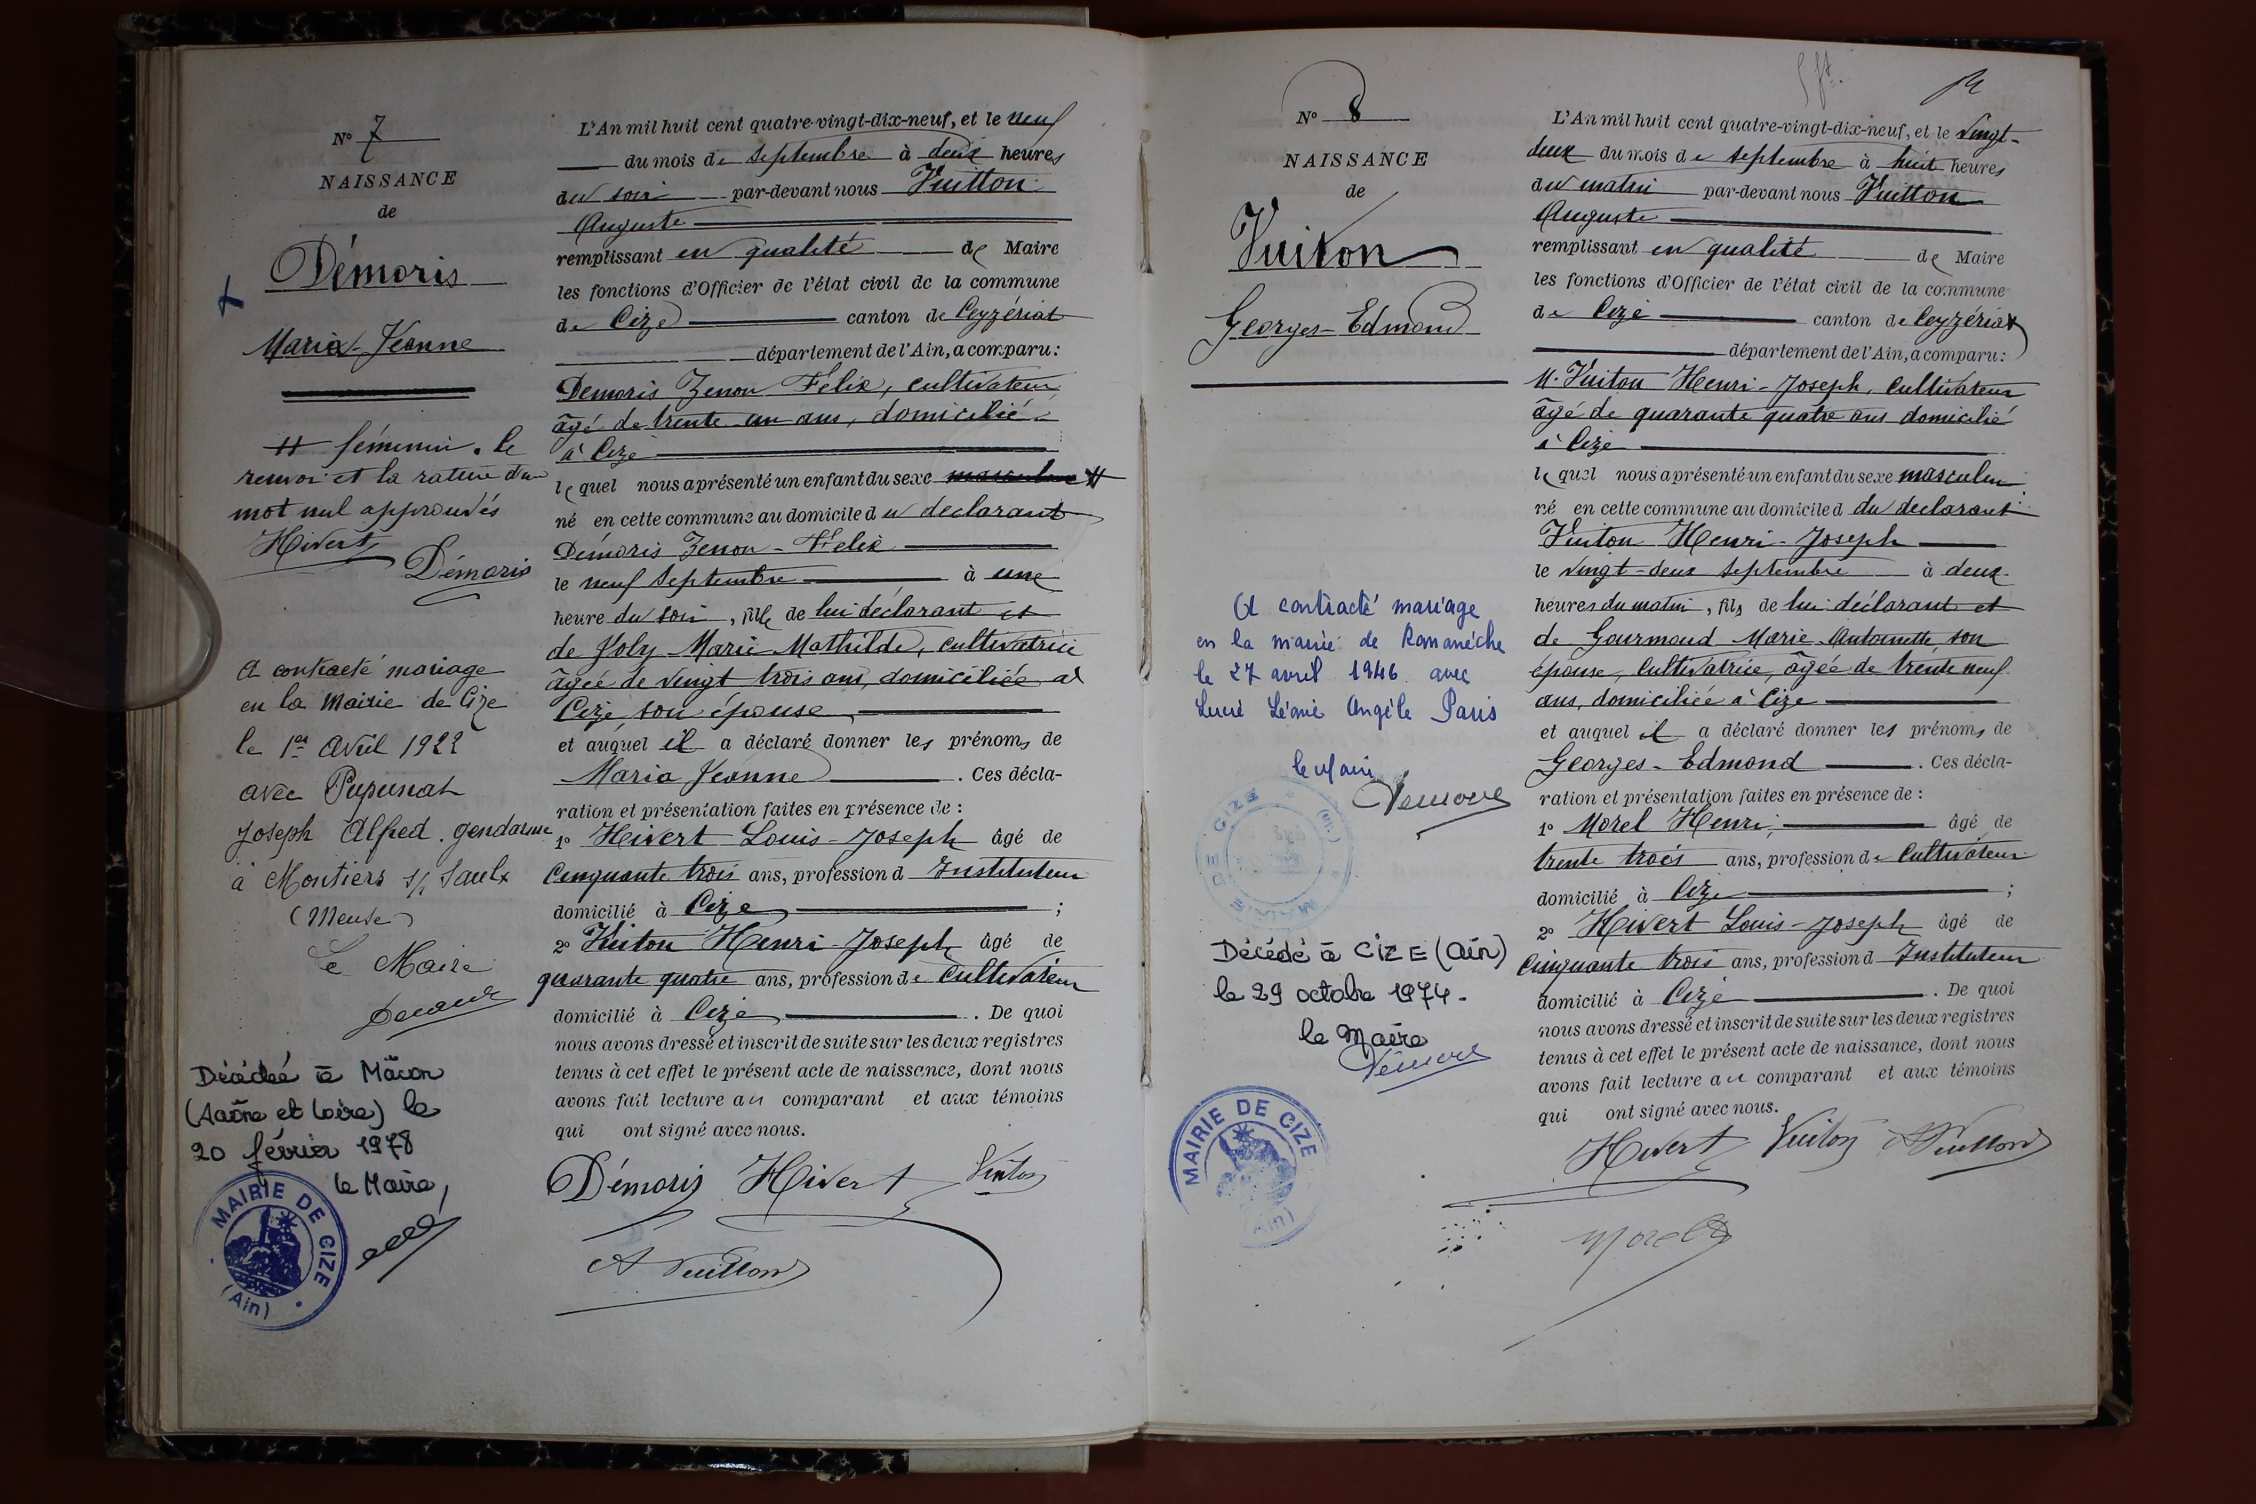 N° 7
NAISSANCE
de
Démoris
Maria Jeanne
# féminin. le
renvoi et la rature d'un
mot nul approuvés
Hivert
Démoris
A contracté mariage
en la Mairie de Cize
le 1er Avril 1922
avec
Joseph Alfred. gendarme
à Montiers s/ Saulx
(Meuse)
Le Maire
Décédée à Mâcon
(Saône et Loire) le
20 février 1978
le Maire,
MAIRIE DE CIZE
(Ain)
L'An mil huit cent quatre-vingt-dix-neuf, et le neuf
du mois de septembre à deux heures
du soir par-devant nous Vuitton
Auguste
remplissant en qualité de Maire
les fonctions d'Officier de l'état civil de la commune
de Cize canton de Ceyzériat
département de l'Ain, a comparu:
Démoris Zenon Félix, cultivateur
âgé de trente un ans, domicilié
à Cize
lequel nous a présenté un enfant du sexe masculin #
né en cette commune au domicile du déclarant
Démoris Zenon-Félix
le neuf septembre à une
heure du soir, fille de lui déclarant et
de Joly Marie Mathilde, cultivatrice
âgée de vingt trois ans, domiciliée à
Cize, son épouse
et auquel il a déclaré donner les prénoms de
Maria Jeanne . Ces décla-
ration et présentation faites en présence de :
1° Hivert Louis-Joseph âgé de
cinquante trois ans, profession d Instituteur
domicilié à Cize ;
2° Vuiton Henri-Joseph âgé de
quarante quatre ans, profession de cultivateur
domicilié à Cize . De quoi
nous avons dressé et inscrit de suite sur les deux registres
tenus à cet effet le présent acte de naissance, dont nous
avons fait lecture au comparant et aux témoins
qui ont signé avec nous.
Démoris Hivert Vuiton
A Vuitton
N° 8
NAISSANCE
de
Vuiton
Georges-Edmond
A contracté mariage
en la mairie de Ramanèche
le 27 avril 1946 avec
Lucie Léonie Angèle Paris
le Maire
MAIRIE DE CIZE
Décédé à CIZE (Ain)
le 29 octobre 1974.
le Maire
MAIRIE DE CIZE
(Ain)
L'An mil huit cent quatre-vingt-dix-neuf, et le vingt-
deux du mois de septembre à huit heures
du matin par-devant nous Vuitton
Auguste
remplissant en qualité de Maire
les fonctions d'Officier de l'état civil de la commune
de Cize canton de Ceyzériat
département de l'Ain, a comparu:
M. Vuiton Henri-Joseph, cultivateur
âgé de quarante quatre ans domicilié
à Cize
lequel nous a présenté un enfant du sexe masculin
né en cette commune au domicile d du déclarant
Vuiton Henri-Joseph
le vingt-deux septembre à deux
heures du matin, fils de lui déclarant et
de Gourmand Marie-Antoinette, son
épouse, cultivatrice, âgée de trente neuf
ans, domiciliée à Cize
et auquel il a déclaré donner les prénoms de
Georges-Edmond . Ces décla-
ration et présentation faites en présence de :
1° Morel Henri, âgé de
trente trois ans, profession de cultivateur
domicilié à Cize ;
2° Hivert Louis-Joseph âgé de
cinquante trois ans, profession d Instituteur
domicilié à Cize . De quoi
nous avons dressé et inscrit de suite sur les deux registres
tenus à cet effet le présent acte de naissance, dont nous
avons fait lecture au comparant et aux témoins
qui ont signé avec nous.
Hivert Vuiton A Vuitton
Morel